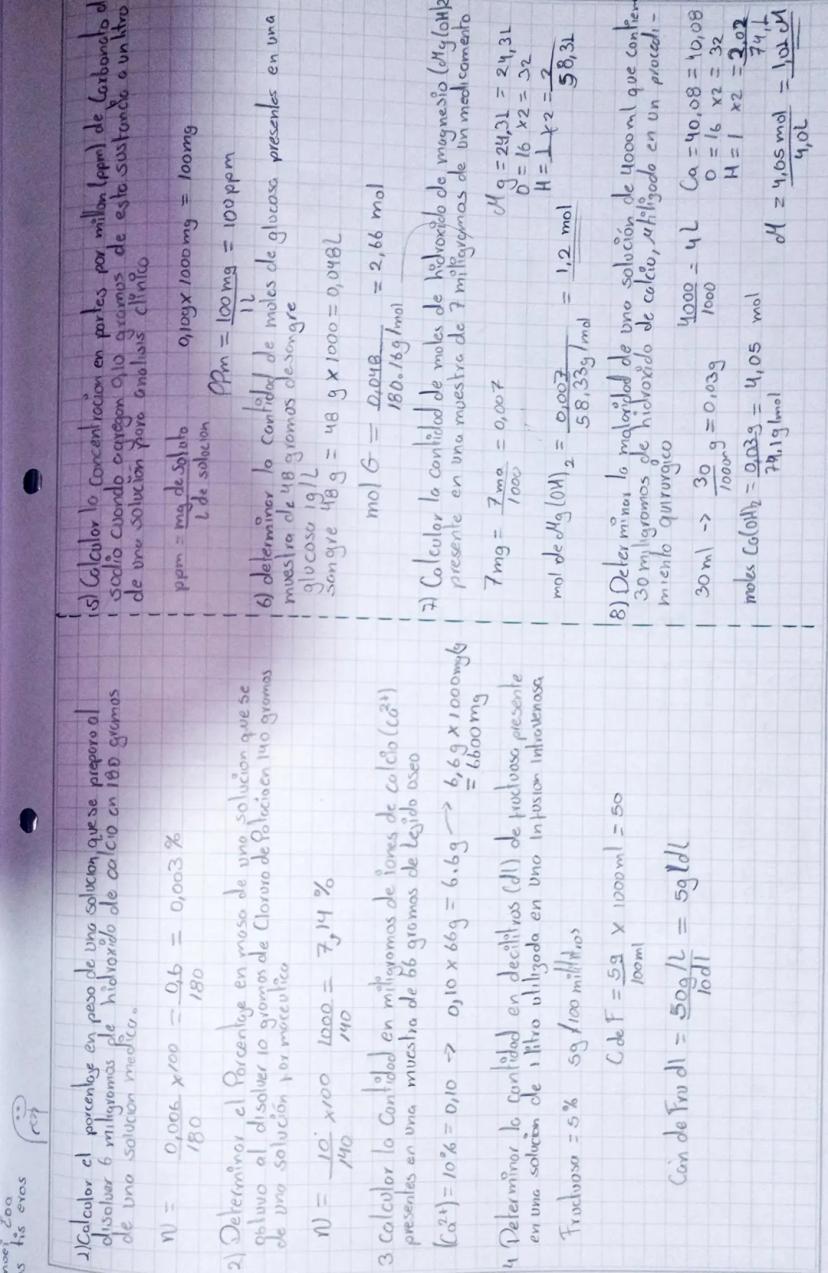 1) Calcular el porcentaje en peso de una solucion, que se preparo al
disolver 6 miligramos de hidroxido de calcio en 180 gramos
de una solucion medica.
N = 0,006/180 x100 = 0,6/180 = 0,003 %
2) Determinar el Porcentaje en masa de una solucion que se
obtuvo al disolver 10 gramos de Cloruro de Potacio en 140 gramos
de una solución farmaceutica
N = 10/140 x100 1000/140 = 7,14 %
3 Calcular la Cantidad en miligramos de iones de calcio (Ca²⁺)
presentes en una muestra de 66 gramos de tejido oseo
(Ca²⁺) = 10% = 0,10 -> 0,10 x 66g = 6.6g -> 6,6g x 1000mg/g
= 6600mg
4 Determinar la cantidad en decilitros (dl) de fructuosa presente
en una solucion de 1 litro utilizada en una Infusion Intravenosa
Fructuosa = 5% 5g/100 mililitros
C de F = 5g/100ml x 1000ml = 50
Can de Fru dl = 50g/L / 10dl = 5g/dl
5) Calcular la Concentracion en partes por millon (ppm) de Carbonato d
sodio cuando agregan 0,10 gramos de esta sustancia a un litro
de una solución para analisis clinico
ppm = mg de soluto / L de solucion
0,10g x 1000mg = 100mg
PPm = 100mg/1L = 100ppm
6) determinar la Cantidad de moles de glucosa presentes en una
muestra de 48 gramos de sangre
glucosa 1g/L
Sangre 48g = 48 g x 1000 = 0,048L
mol G = 0,048 / 180.16g/mol = 2,66 mol
7) Calcular la cantidad de moles de hidroxido de magnesio (Mg(OH)2
presente en una muestra de 7 miligramos de un medicamento
7mg = 7mg/1000 = 0,007
Mg = 24,31 = 24,31
O = 16 x2 = 32
H = 1 x2 = 2
58,31
mol de Mg(OH)2 = 0,007 / 58,33g/mol = 1,2 mol
8) Determinar la molaridad de una solución de 4000ml que contien
30 miligramos de hidroxido de calcio, utilizado en un procedi-
miento quirurgico
30ml -> 30/1000mg g = 0,03g
4000/1000 = 4L
Ca = 40,08 = 40,08
O = 16 x2 = 32
H = 1 x2 = 2,02
74,1
moles Ca(OH)2 = 0,03g / 74,1g/mol = 4,05 mol
M = 4,05 mol / 4,0L = 1,02 M